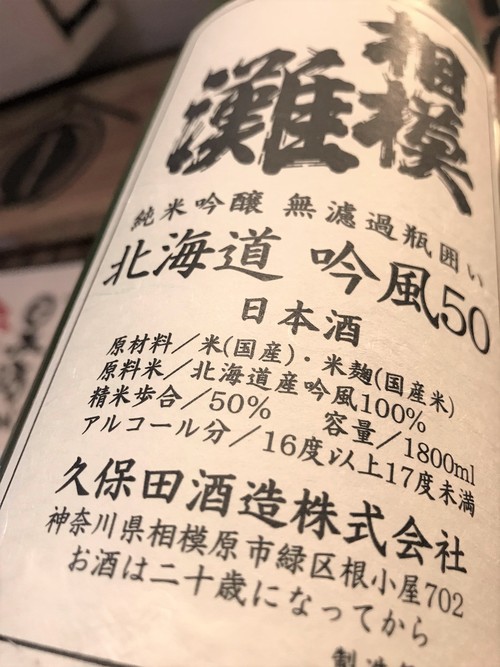 相模
灘
純米吟醸 無濾過瓶囲い
北海道 吟風50
日本酒
原材料／米(国産)・米麹(国産米)
原料米／北海道産吟風100%
精米歩合／50% 容量／1800ml
アルコール分／16度以上17度未満
久保田酒造株式会社
神奈川県相模原市緑区根小屋702
お酒は二十歳になってから
製造